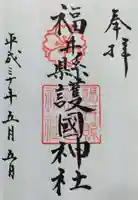 奉拝
福井縣護國神社
平成三十年五月五日